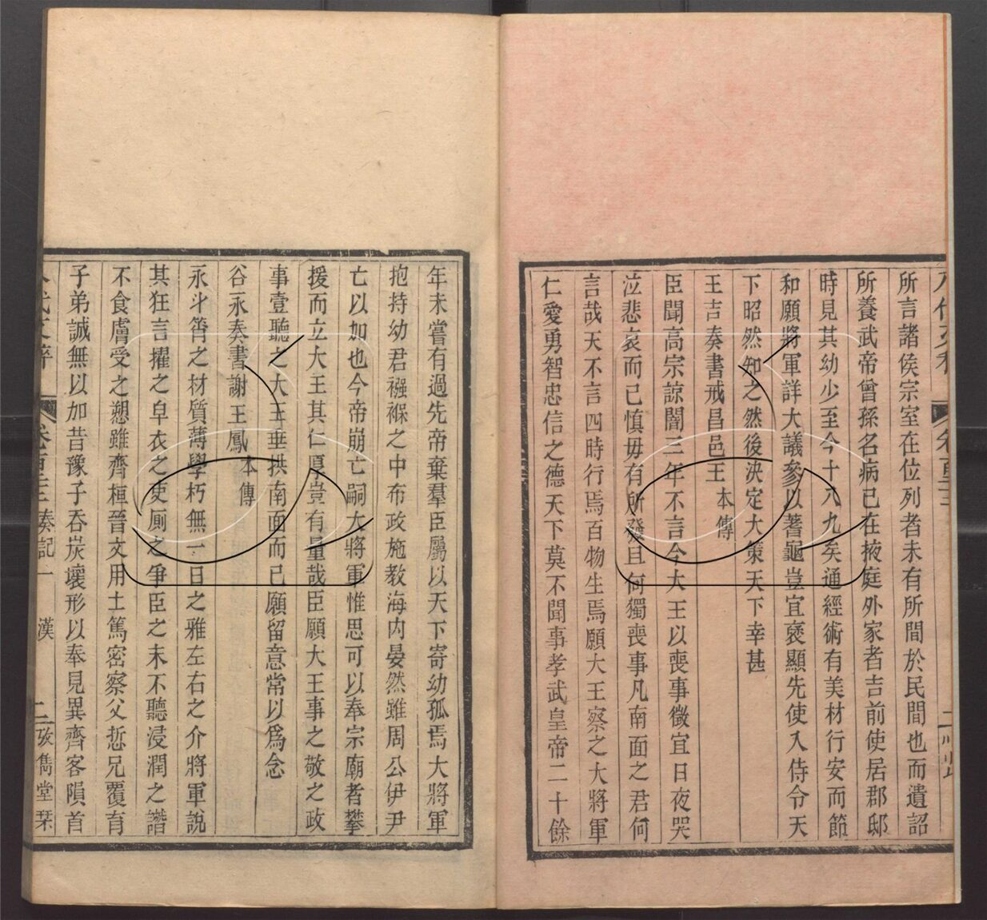 所言諸侯宗室在位列者未有所聞於民間也而遺詔
所養武帝曾孫名病已在掖庭外家者吉前使居郡邸
時見其幼少至今十八九矣通經術有美材行安而節
和願將軍詳大議參以蓍龜豈宜襃顯先使入侍令天
下昭然知之然後決定大策天下幸甚
王吉奏書戒昌邑王 本傳
臣聞高宗諒闇三年不言今大王以喪事徵宜日夜哭
泣悲哀而已慎毋有所發且何獨喪事凡南面之君何
言哉天不言四時行焉百物生焉願大王察之大將軍
仁愛勇智忠信之德天下莫不聞事孝武皇帝二十餘
年未嘗有過先帝棄羣臣屬以天下寄幼孤焉大將軍
抱持幼君襁褓之中布政施教海內晏然雖周公伊尹
亡以加也今帝崩亡嗣大將軍惟思可以奉宗廟者攀
援而立大王其仁厚豈有量哉臣願大王事之敬之政
事壹聽之大王垂拱南面而已願留意常以爲念
谷永奏書謝王鳳 本傳
永斗筲之材質薄學朽無一日之雅左右之介將軍說
其狂言擢之皁衣之吏厠之爭臣之末不聽浸潤之譖
不食膚受之愬雖齊桓晉文用士篤密察父悊兄覆育
子弟誠無以加昔豫子吞炭壞形以奉見異齊客隕首
八代文粹 卷百三 奏記一 漢 二 攷雋堂栞